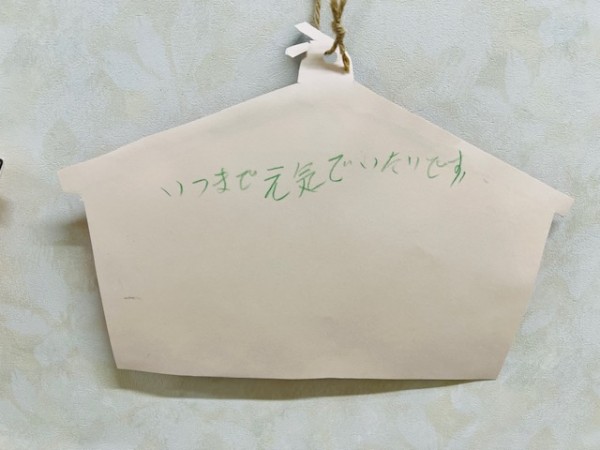 いつまで元気でいたいです